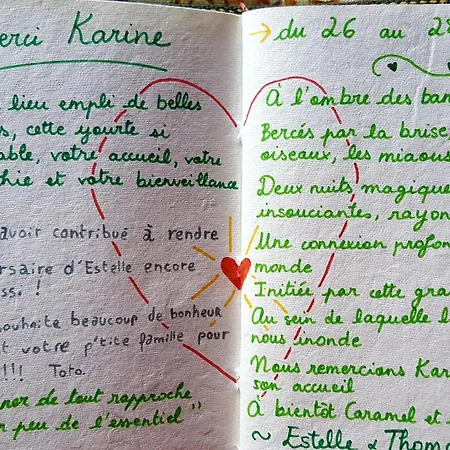 erci Karine
lieu empli de belles
s, cette yourte si
able, votre accueil, votre
hie et votre bienveillance
avoir contribué à rendre
rsaire d'Estelle encore
ss. !
ouhaite beaucoup de bonheur
t votre p'tite famille pour
!!! Toto.
ner de tout rapproche
n peu de l'essentiel"
→ du 26 au 28
À l'ombre des bam
Bercés par la brise,
oiseaux, les miaous
Deux nuits magique
insouciantes, rayon
Une connexion profon
monde
Initiée par cette gra
Au sein de laquelle l
nous inonde
Nous remercions Kar
son accueil
À bientôt Caramel et
~ Estelle & Thoma